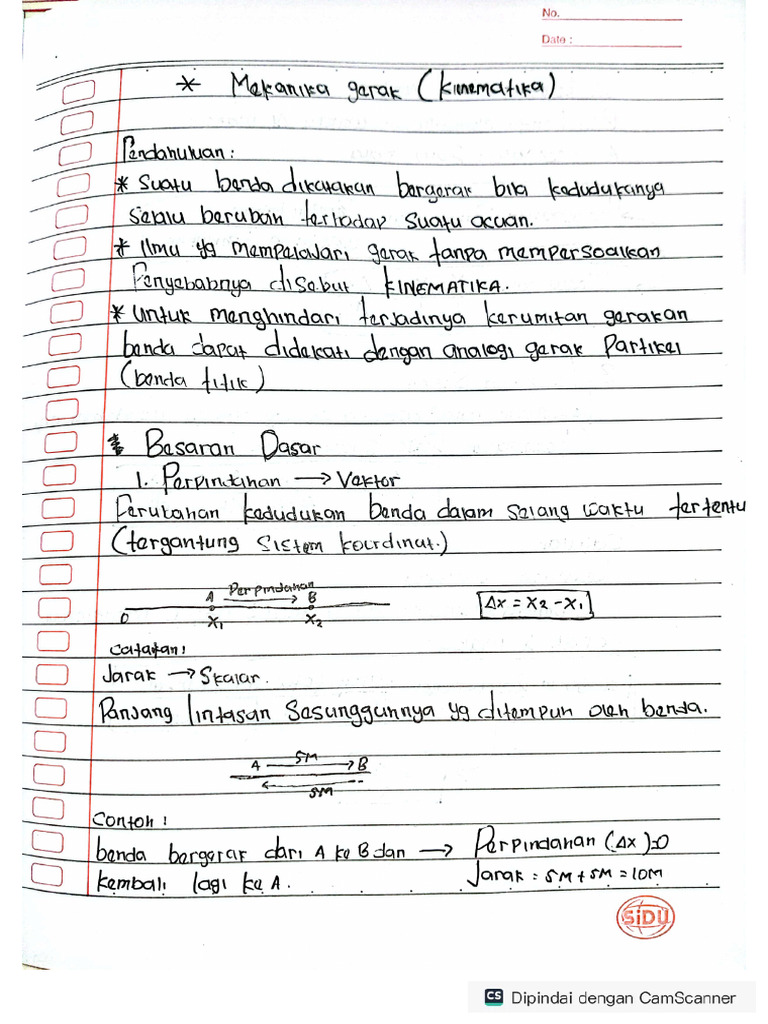 No.
Date :
* Mekanika gerak (Kinematika)
Pendahuluan :
* Suatu benda dikatakan bergerak bila kedudukanya
selalu berubah terhadap suatu acuan.
* Ilmu yg mempelajari gerak tanpa mempersoalkan
Penyebabnya disebut KINEMATIKA.
* Untuk menghindari terjadinya kerumitan gerakan
benda dapat didekati dengan analogi gerak Partikel
(benda titik)
* Besaran Dasar
1. Perpindahan → Vektor
Perubahan kedudukan benda dalam selang waktu tertentu
(tergantung sistem koordinat.)
Perpindahan
A B
Δx = x2 - x1
0 x1 x2
Catatan :
Jarak → Skalar.
Panjang lintasan Sesungguhnya yg ditempuh oleh benda.
A 5M B
5M
Contoh :
benda bergerak dari A ke B dan → Perpindahan (Δx)=0
kembali lagi ke A. Jarak = 5M + 5M = 10M
SiDU
CS Dipindai dengan CamScanner